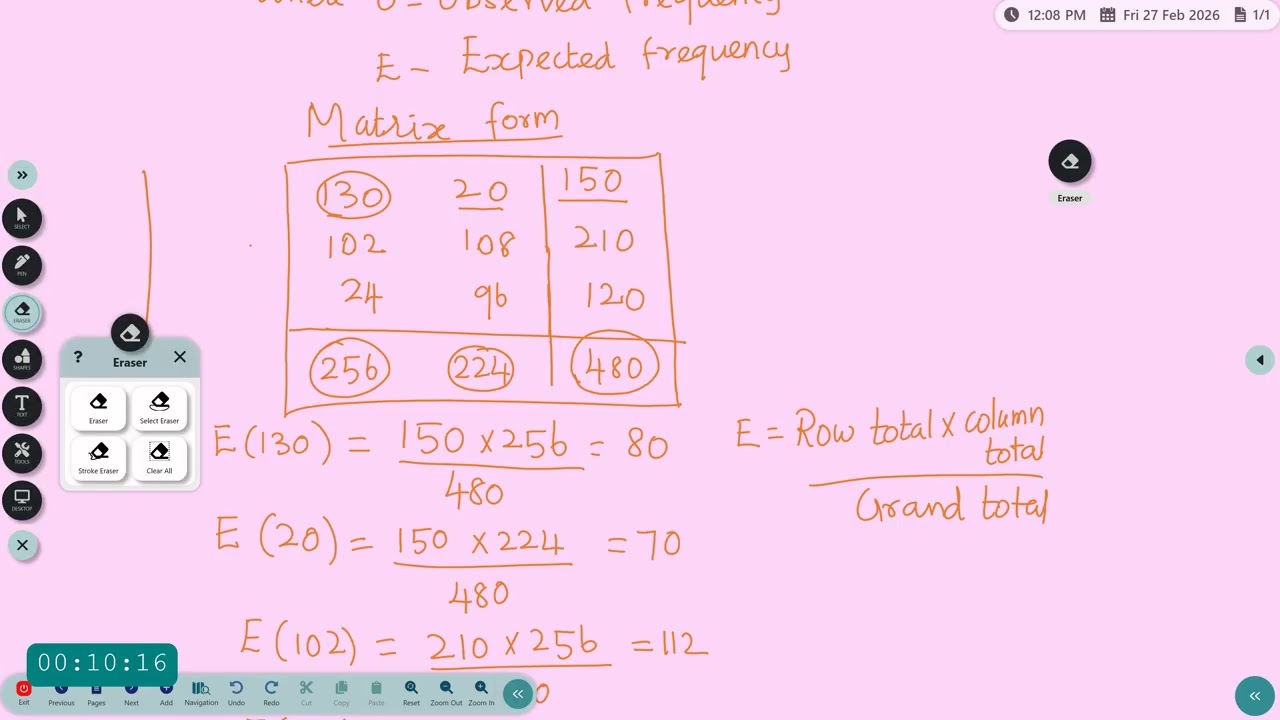 12:08 PM Fri 27 Feb 2026 1/1
where O - Observed frequency
E - Expected frequency
Matrix form
130 20 150
102 108 210
24 96 120
256 224 480
E(130) = 150 x 256 = 80
480
E = Row total x column
total
Grand total
E (20) = 150 x 224 = 70
480
E (102) = 210 x 256 = 112
0
Eraser
SELECT
PEN
ERASER
SHAPES
TEXT
TOOLS
DESKTOP
? Eraser
Eraser Select Eraser
Stroke Eraser Clear All
00:10:16
Exit Previous Pages Next Add Navigation Undo Redo Cut Copy Paste Reset Zoom Out Zoom In